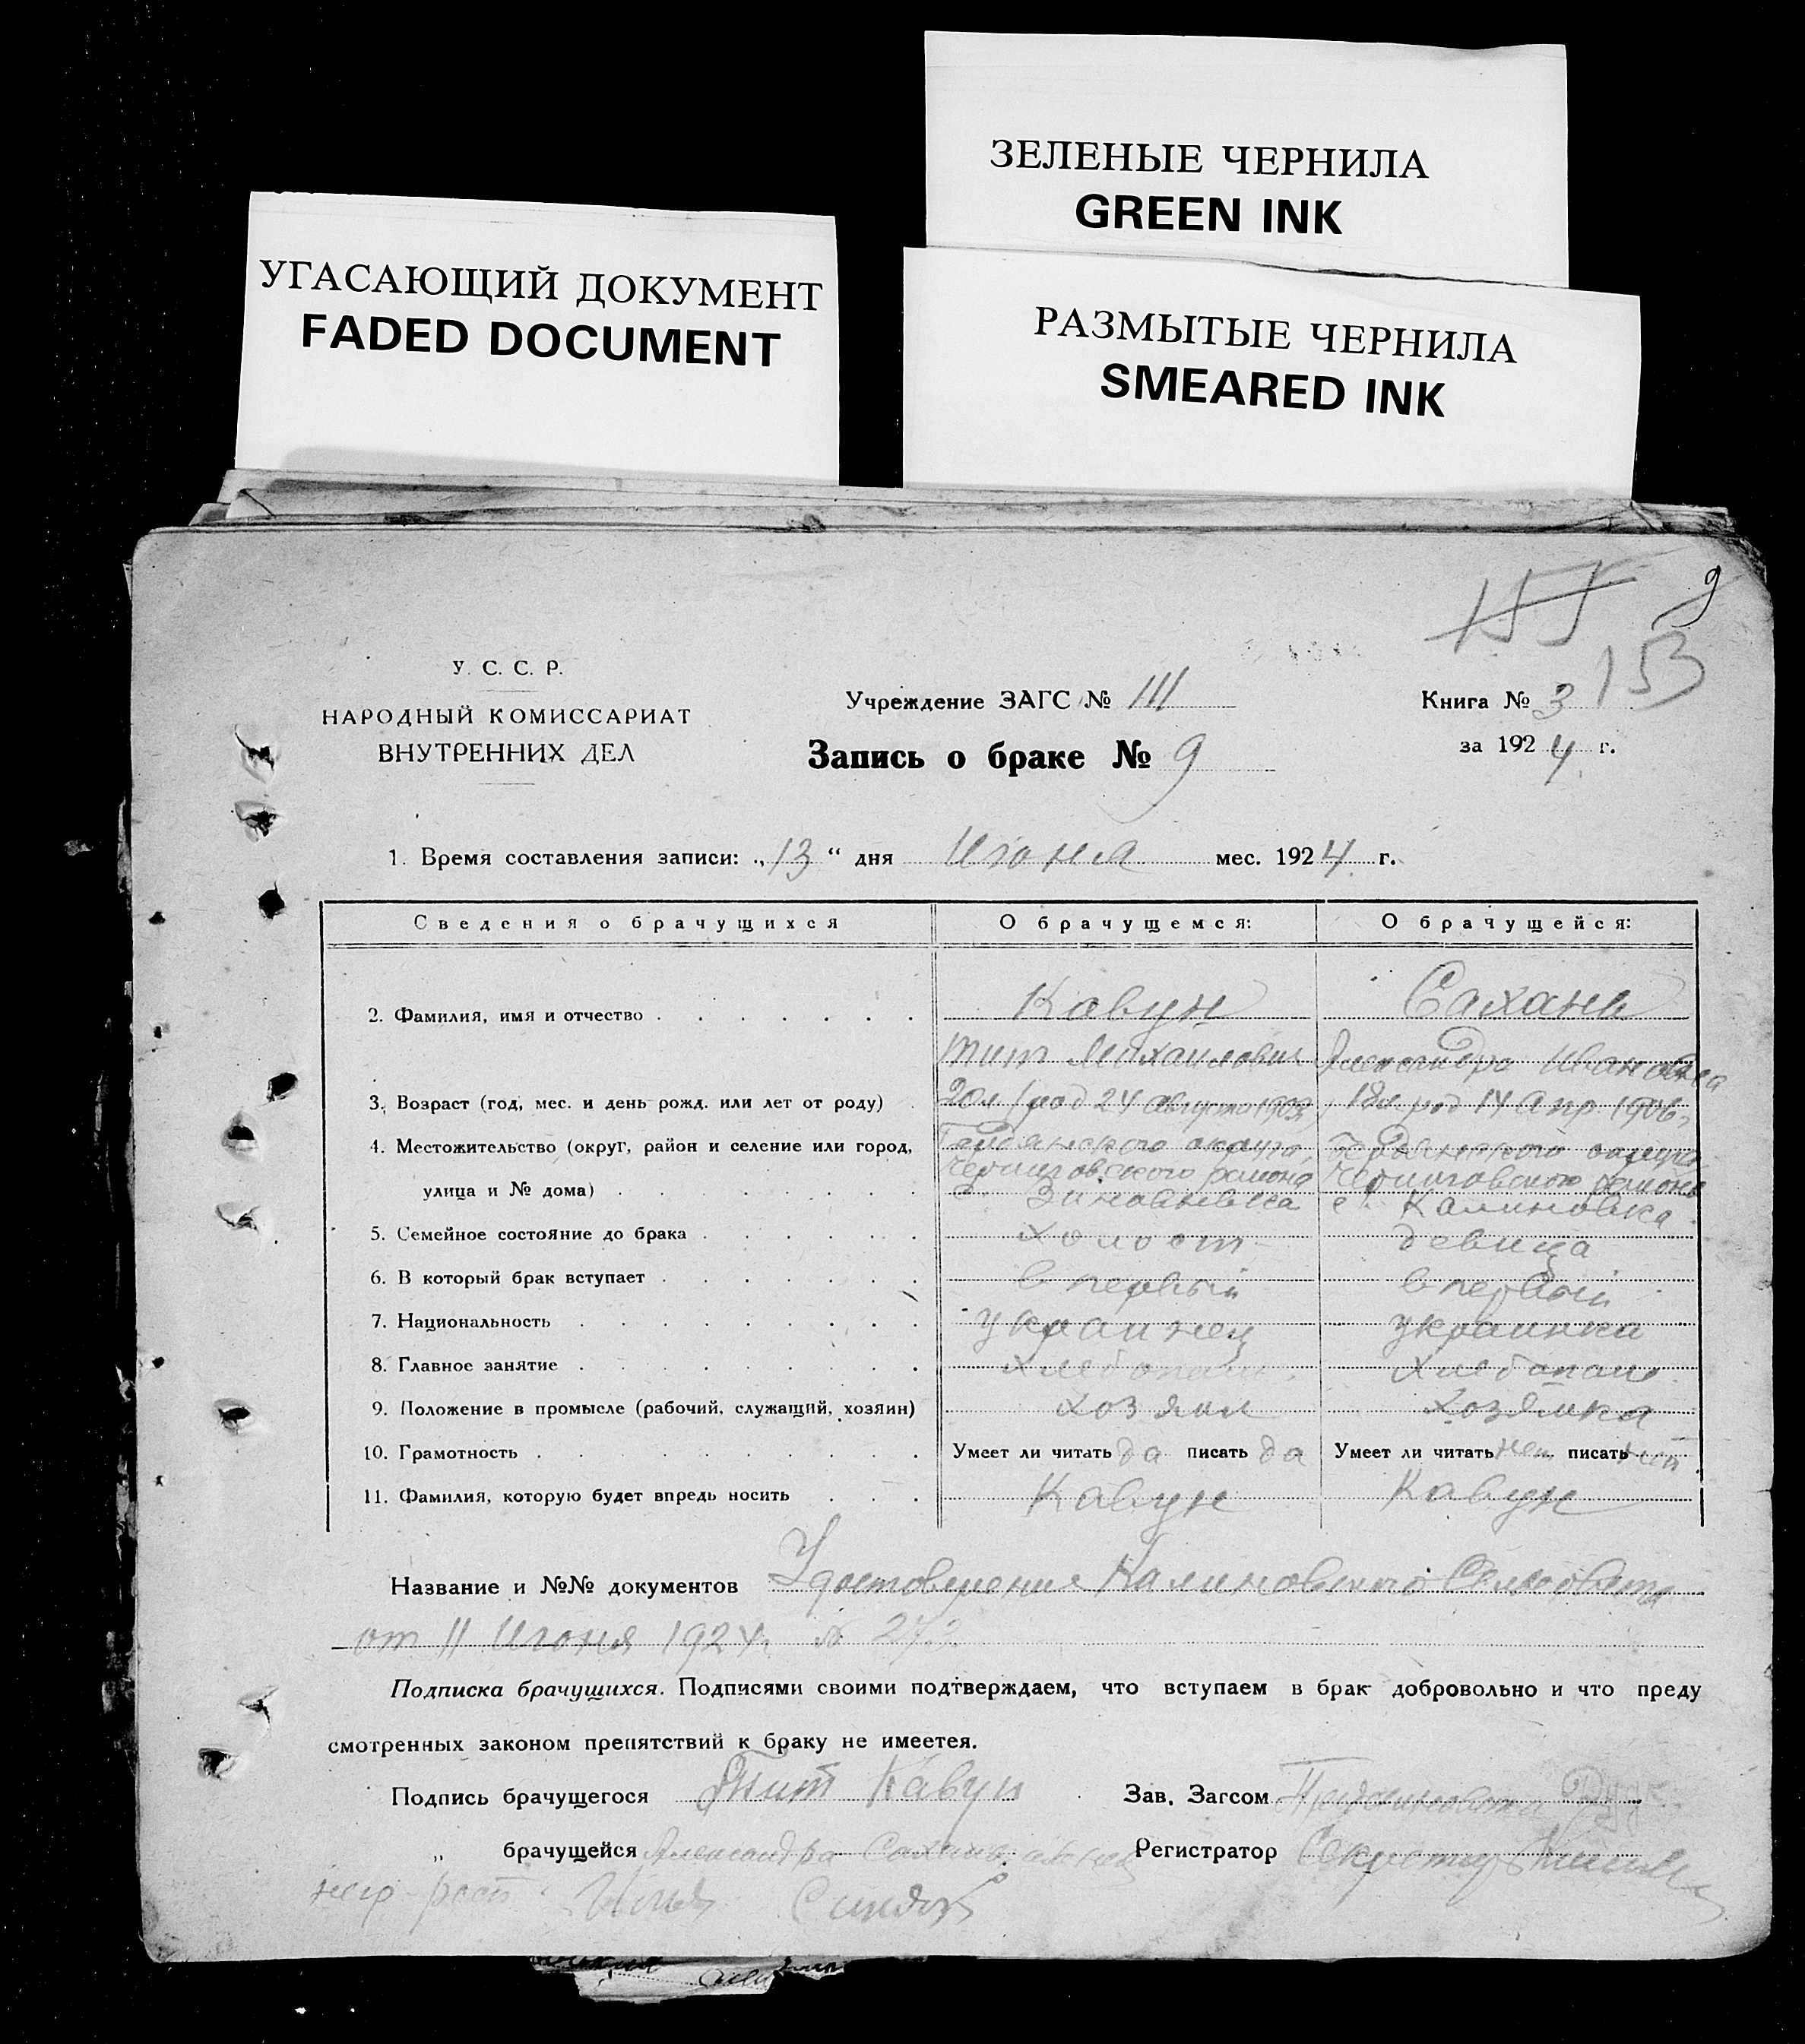 ЗЕЛЕНЫЕ ЧЕРНИЛА
GREEN INK
УГАСАЮЩИЙ ДОКУМЕНТ
FADED DOCUMENT
РАЗМЫТЫЕ ЧЕРНИЛА
SMEARED INK
9
155
153
У. С. С. Р.
НАРОДНЫЙ КОМИССАРИАТ
ВНУТРЕННИХ ДЕЛ
Учреждение ЗАГС № III
Книга № 3
Запись о браке № 9
за 1924 г.
1. Время составления записи: „13“ дня Июня мес. 1924 г.
Сведения о брачущихся О брачущемся: О брачущейся:
2. Фамилия, имя и отчество Кавун Сахань
Тит Михаилович Александра Ивановна
3. Возраст (год, мес. и день рожд. или лет от роду) 20 л. род 24 августа 1903, 18 л. род 14 Апр. 1906,
4. Местожительство (округ, район и селение или город, округа, округа
Черниговского района Черниговского района
улица и № дома) с. Зиновьевка с. Калиновка
5. Семейное состояние до брака холост девица
6. В который брак вступает в первый в первый
7. Национальность украинец украинка
8. Главное занятие хлебопаш. хлебопаш.
9. Положение в промысле (рабочий, служащий, хозяин) хозяин хозяйка
10. Грамотность Умеет ли читать да писать да Умеет ли читать нет писать нет
11. Фамилия, которую будет впредь носить Кавун Кавун
Название и №№ документов Удостоверения Калиновского Сельсовета
от 11 Июня 1924 г. №
Подписка брачущихся. Подписями своими подтверждаем, что вступаем в брак добровольно и что преду
смотренных законом препятствий к браку не имеется.
Подпись брачущегося Тит Кавун Зав. Загсом
„ брачущейся Александра Сахань Регистратор Секретарь